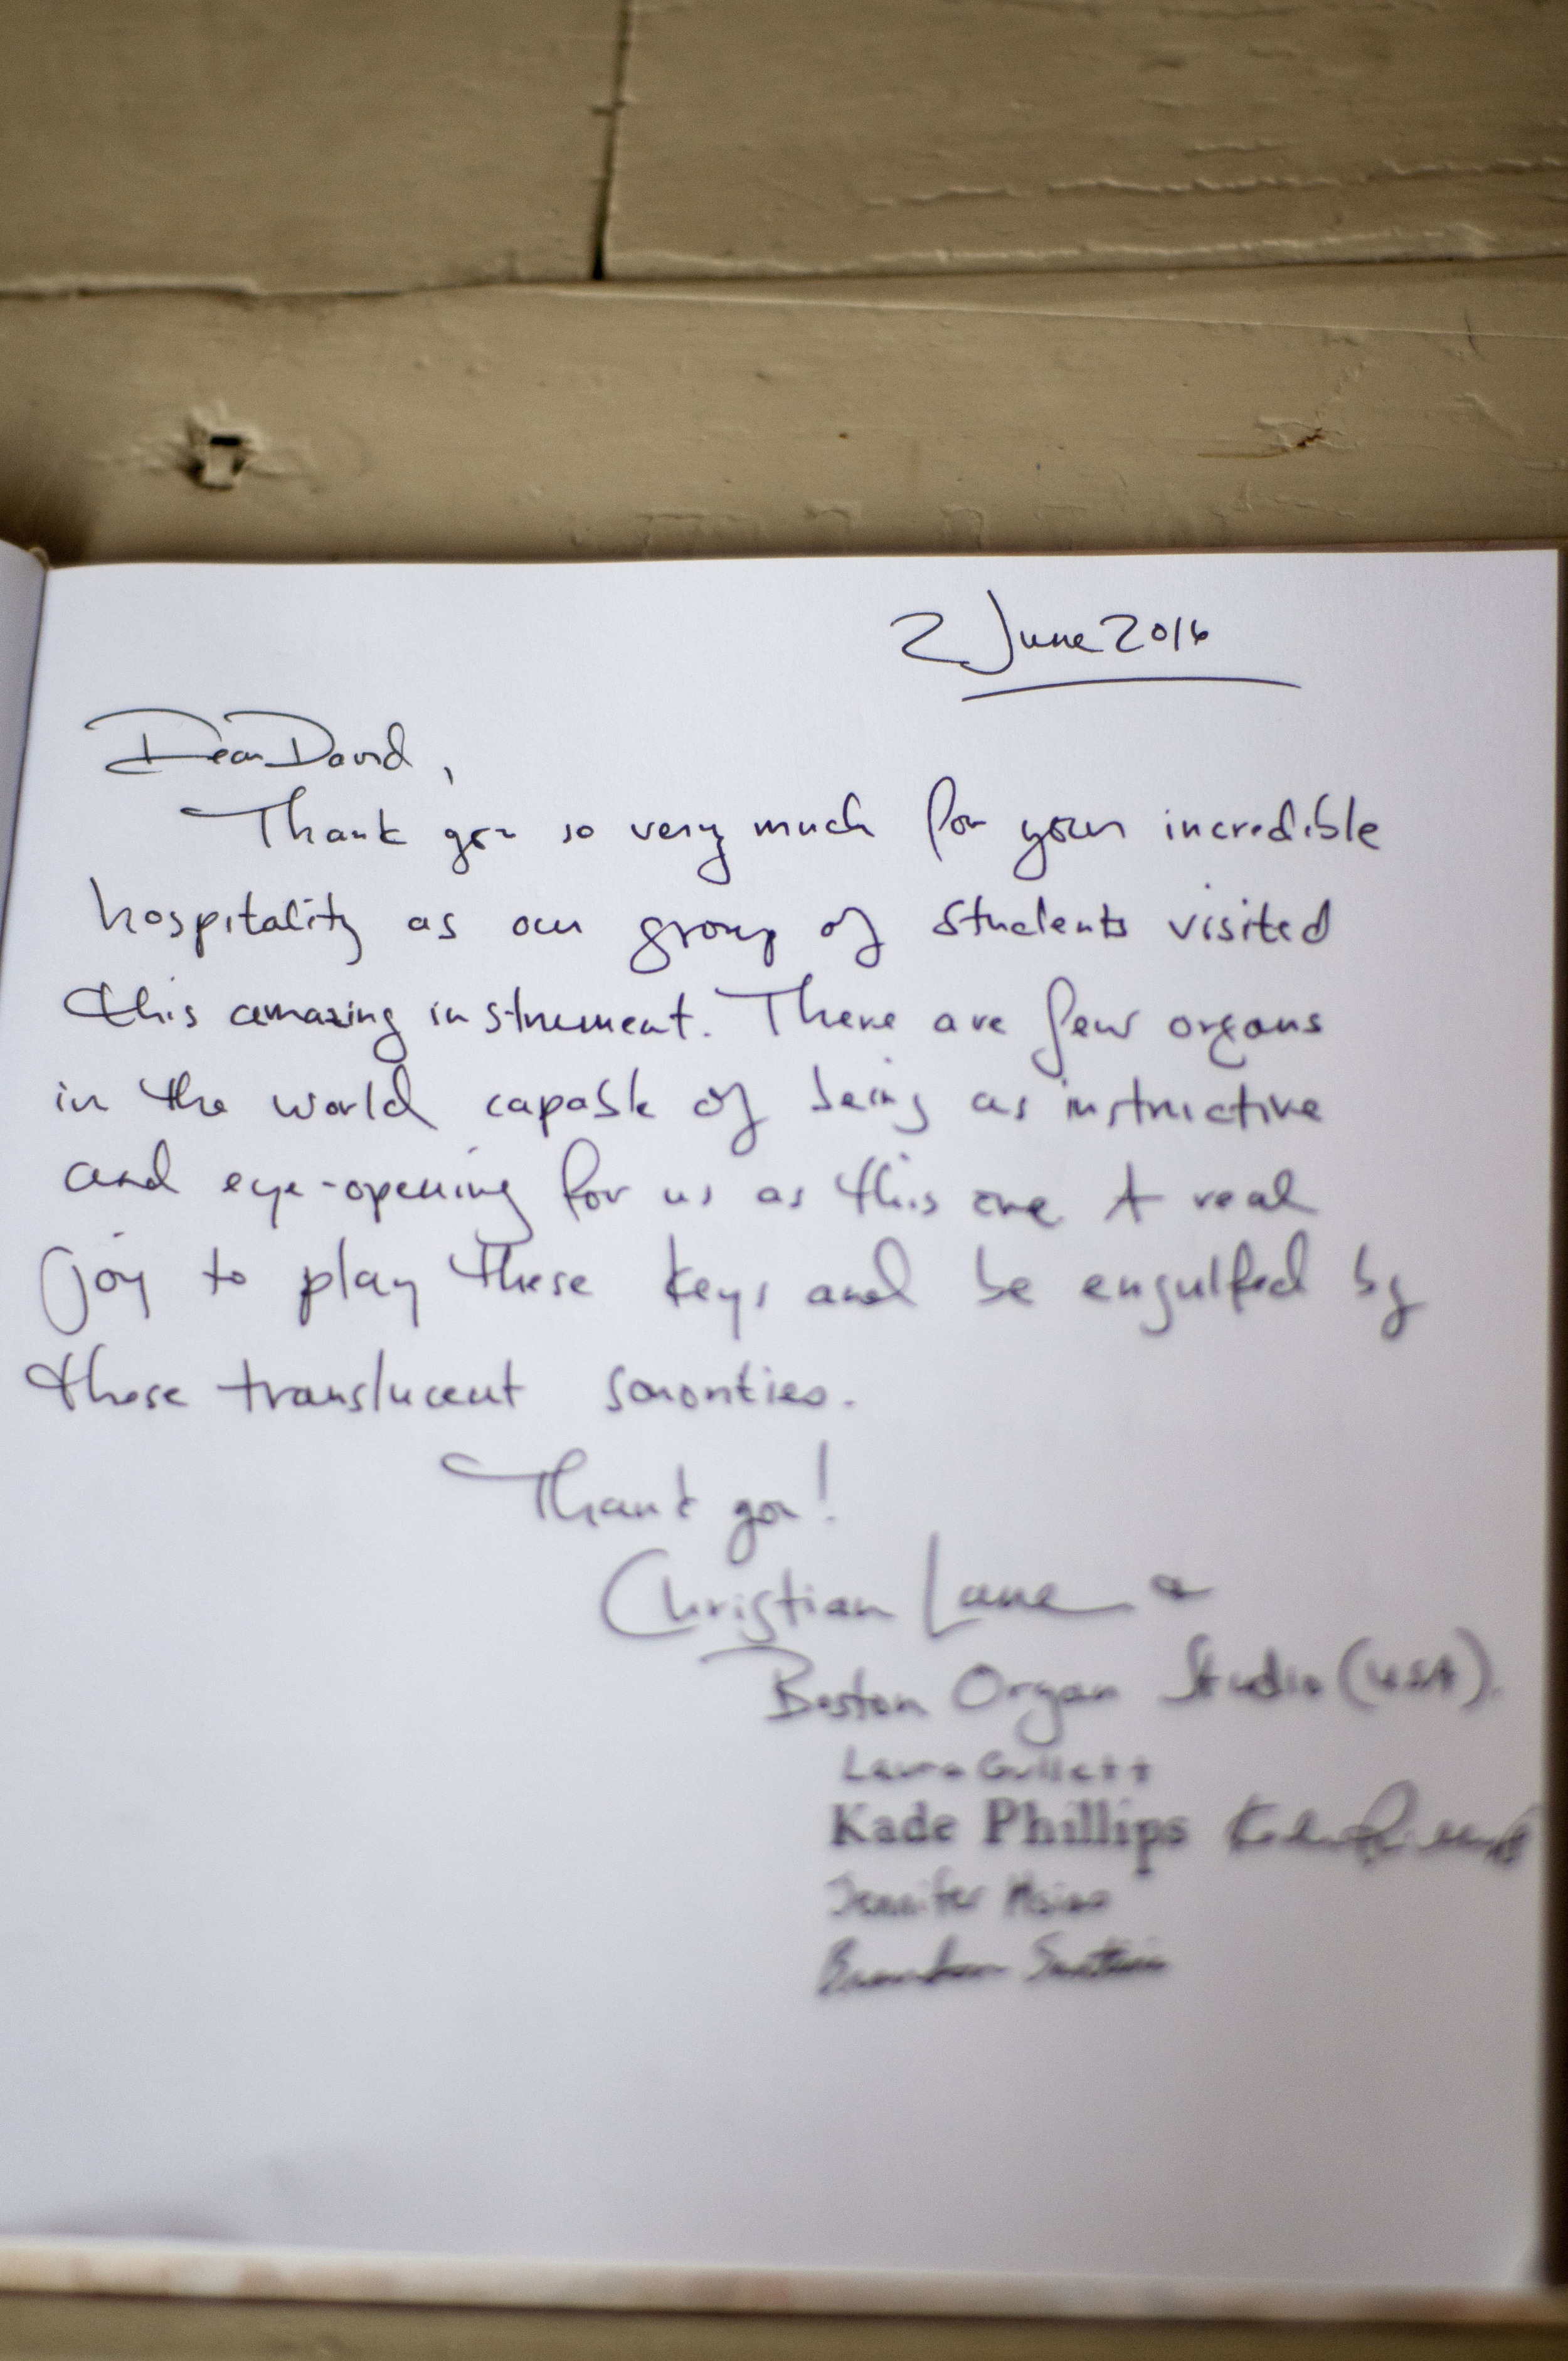 2 June 2016
Dear David,
Thank you so very much for your incredible
hospitality as our group of students visited
this amazing instrument. There are few organs
in the world capable of being as instructive
and eye-opening for us as this one. A real
joy to play these keys and be engulfed by
these translucent sonorities.
Thank you!
Christian Lane &
Boston Organ Studio (USA).
Laura Gullett
Kade Phillips
Jennifer Hsiao
Brandon